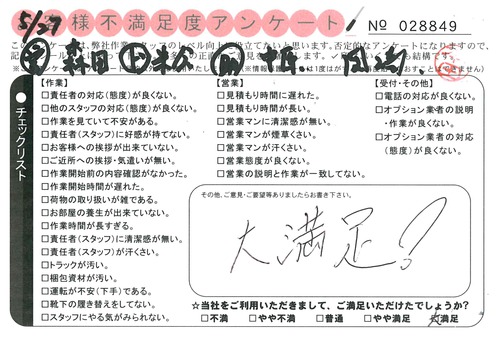 5/27
客様不満足度アンケート!
№ 028849
【作業】
□責任者の対応(態度)が良くない。
□他のスタッフの対応(態度)が良くない。
□作業を見ていて不安がある。
□責任者(スタッフ)に好感が持てない。
□お客様への挨拶が出来ていない。
□ご近所への挨拶・気遣いが無い。
□作業開始前の内容確認がなかった。
□作業開始時間が遅れた。
□荷物の取り扱いが雑である。
□お部屋の養生が出来ていない。
□作業時間が長すぎる。
□責任者(スタッフ)に清潔感が無い。
□責任者(スタッフ)が汗くさい。
□トラックが汚い。
□梱包資材が汚い。
□運転が不安(下手)である。
□靴下の履き替えをしてない。
□スタッフにやる気がみられない。
【営業】
□見積もり時間に遅れた。
□見積もり時間が長い。
□営業マンに清潔感が無い。
□営業マンが煙草くさい。
□営業マンが汗くさい。
□営業態度が良くない。
□営業の説明と作業が一致してない。
【受付・その他】
□電話の対応が良くない。
□オプション業者の説明
・作業が良くない。
□オプション業者の対応
(態度)が良くない。
チェックリスト
その他、ご意見・ご要望等ありましたらお書き下さい。
大満足!
☆当社をご利用いただきまして、ご満足いただけたでしょうか?
□不満 □やや不満 □普通 □やや満足 大満足